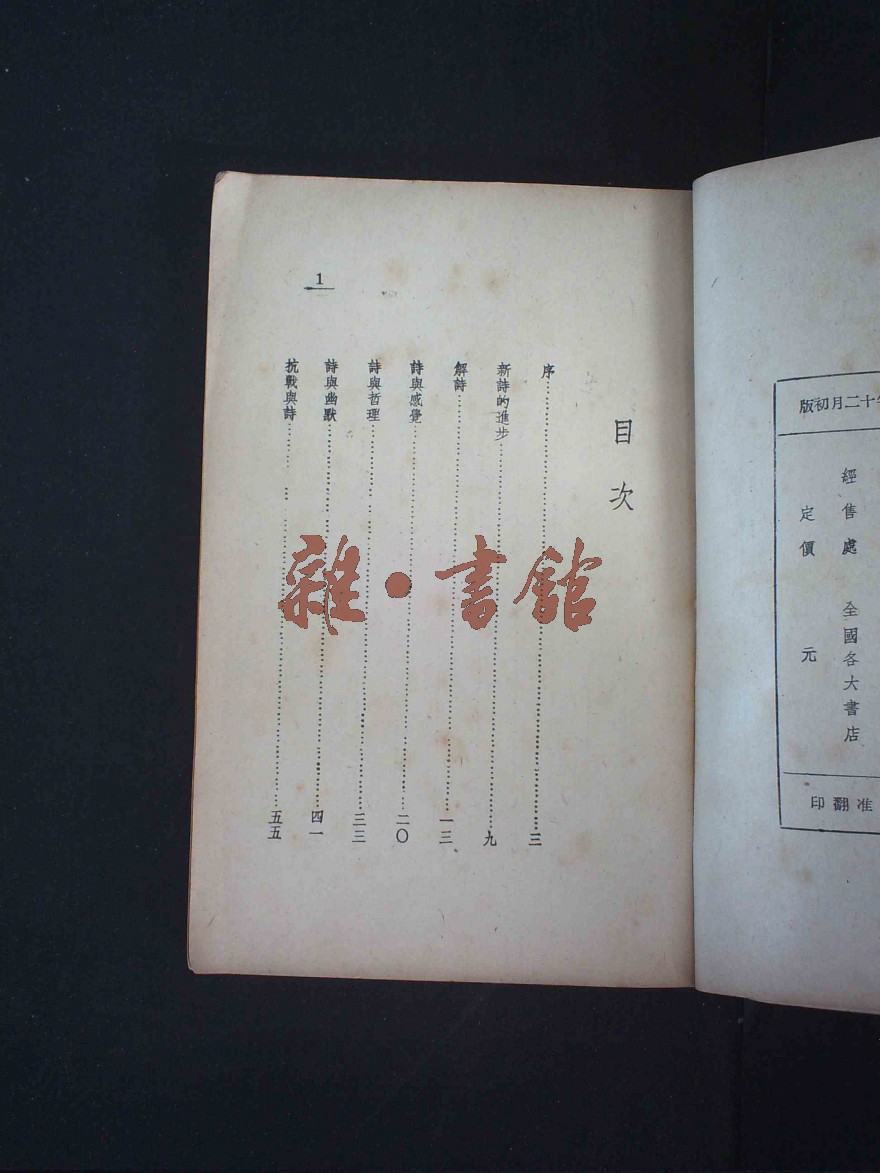 目次
序 三
新詩的進步 九
解詩 一三
詩與感覺 二〇
詩與哲理 三三
詩與幽默 四一
抗戰與詩 五五
1
雜·書館
十二月初版
經售處 全國各大書店
定價 元
准翻印